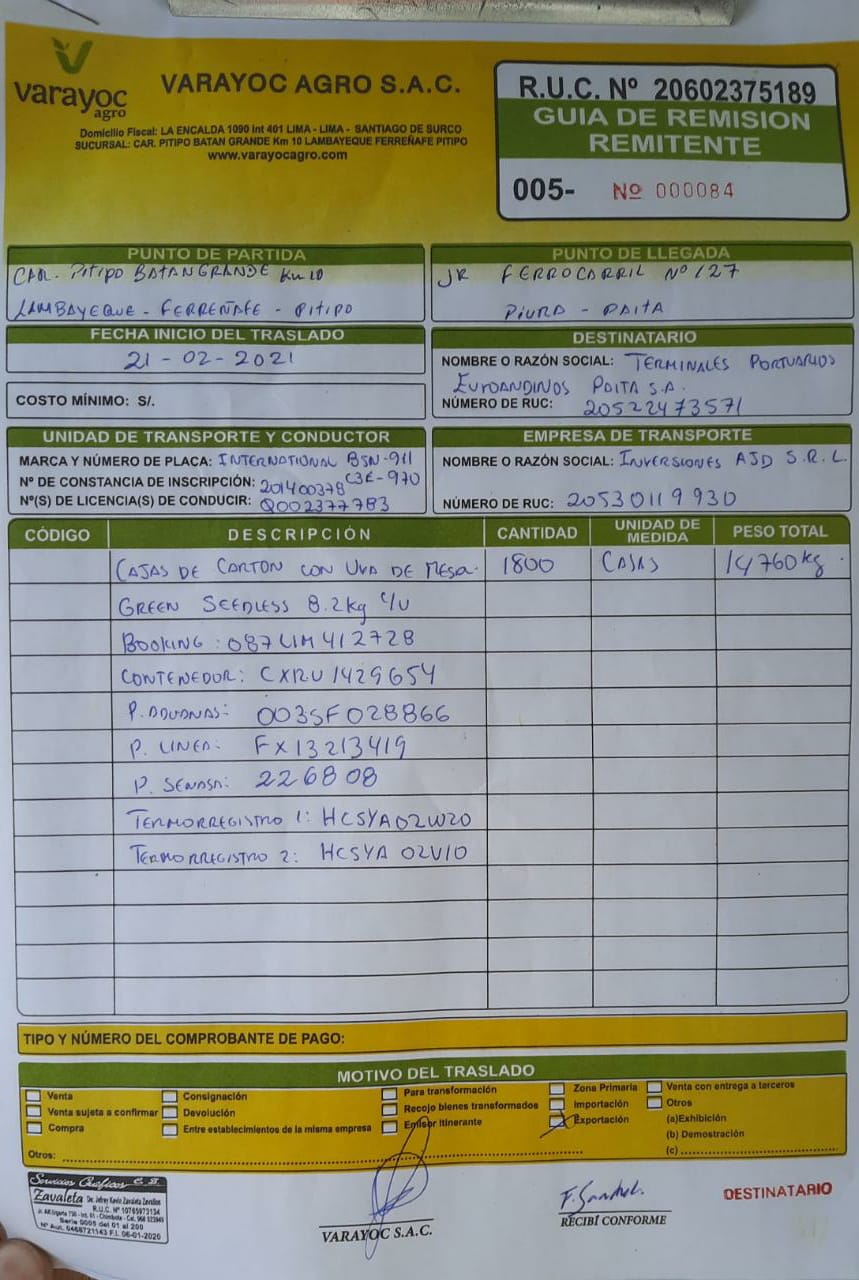 varayoc
agro
VARAYOC AGRO S.A.C.
Domicilio Fiscal: LA ENCALDA 1090 Int 401 LIMA - LIMA - SANTIAGO DE SURCO
SUCURSAL: CAR. PITIPO BATAN GRANDE Km 10 LAMBAYEQUE FERREÑAFE PITIPO
www.varayocagro.com
R.U.C. Nº 20602375189
GUIA DE REMISION
REMITENTE
005- Nº 000084
PUNTO DE PARTIDA
CAR. PITIPO BATANGRANDE Km 10
LAMBAYEQUE - FERREÑAFE - PITIPO
PUNTO DE LLEGADA
JR FERROCARRIL Nº 127
PIURA - PAITA
FECHA INICIO DEL TRASLADO
21-02-2021
COSTO MÍNIMO: S/.
DESTINATARIO
NOMBRE O RAZÓN SOCIAL: TERMINALES PORTUARIOS
EUROANDINOS PAITA S.A.
NÚMERO DE RUC: 20522473571
UNIDAD DE TRANSPORTE Y CONDUCTOR
MARCA Y NÚMERO DE PLACA: INTERNATIONAL BSN-911
C3E-970
Nº DE CONSTANCIA DE INSCRIPCIÓN: 201400378
Nº(S) DE LICENCIA(S) DE CONDUCIR: Q002377783
EMPRESA DE TRANSPORTE
NOMBRE O RAZÓN SOCIAL: INVERSIONES AJD S.R.L.
NÚMERO DE RUC: 20530119930
CÓDIGO DESCRIPCIÓN CANTIDAD UNIDAD DE MEDIDA PESO TOTAL
CAJAS DE CARTON CON UVA DE MESA. 1800 CAJAS 14760kg.
GREEN SEEDLESS 8.2kg c/u
BOOKING: 087LIM412728
CONTENEDOR: CXRU 1429654
P. ADUANAS: 003SF028866
P. LINEA: FX13213419
P. SENASA: 226808
TERMORREGISTRO 1: HCSYA02W20
TERMORREGISTRO 2: HCSYA 02V10
TIPO Y NÚMERO DEL COMPROBANTE DE PAGO:
MOTIVO DEL TRASLADO
Venta
Venta sujeta a confirmar
Compra
Consignación
Devolución
Entre establecimientos de la misma empresa
Para transformación
Recojo bienes transformados
Emisor Itinerante
Zona Primaria
Importación
Exportación
Venta con entrega a terceros
Otros
(a)Exhibición
(b) Demostración
(c)
Otros:
Servicios Gráficos
Zavaleta De: Jefrey Kevin Zavaleta Zavallos
R.U.C. Nº 10765973134
Serie 0005 del 01 al 200
Nº Aut. 0468721143 F.I. 06-01-2020
VARAYOC S.A.C.
RECIBÍ CONFORME
DESTINATARIO